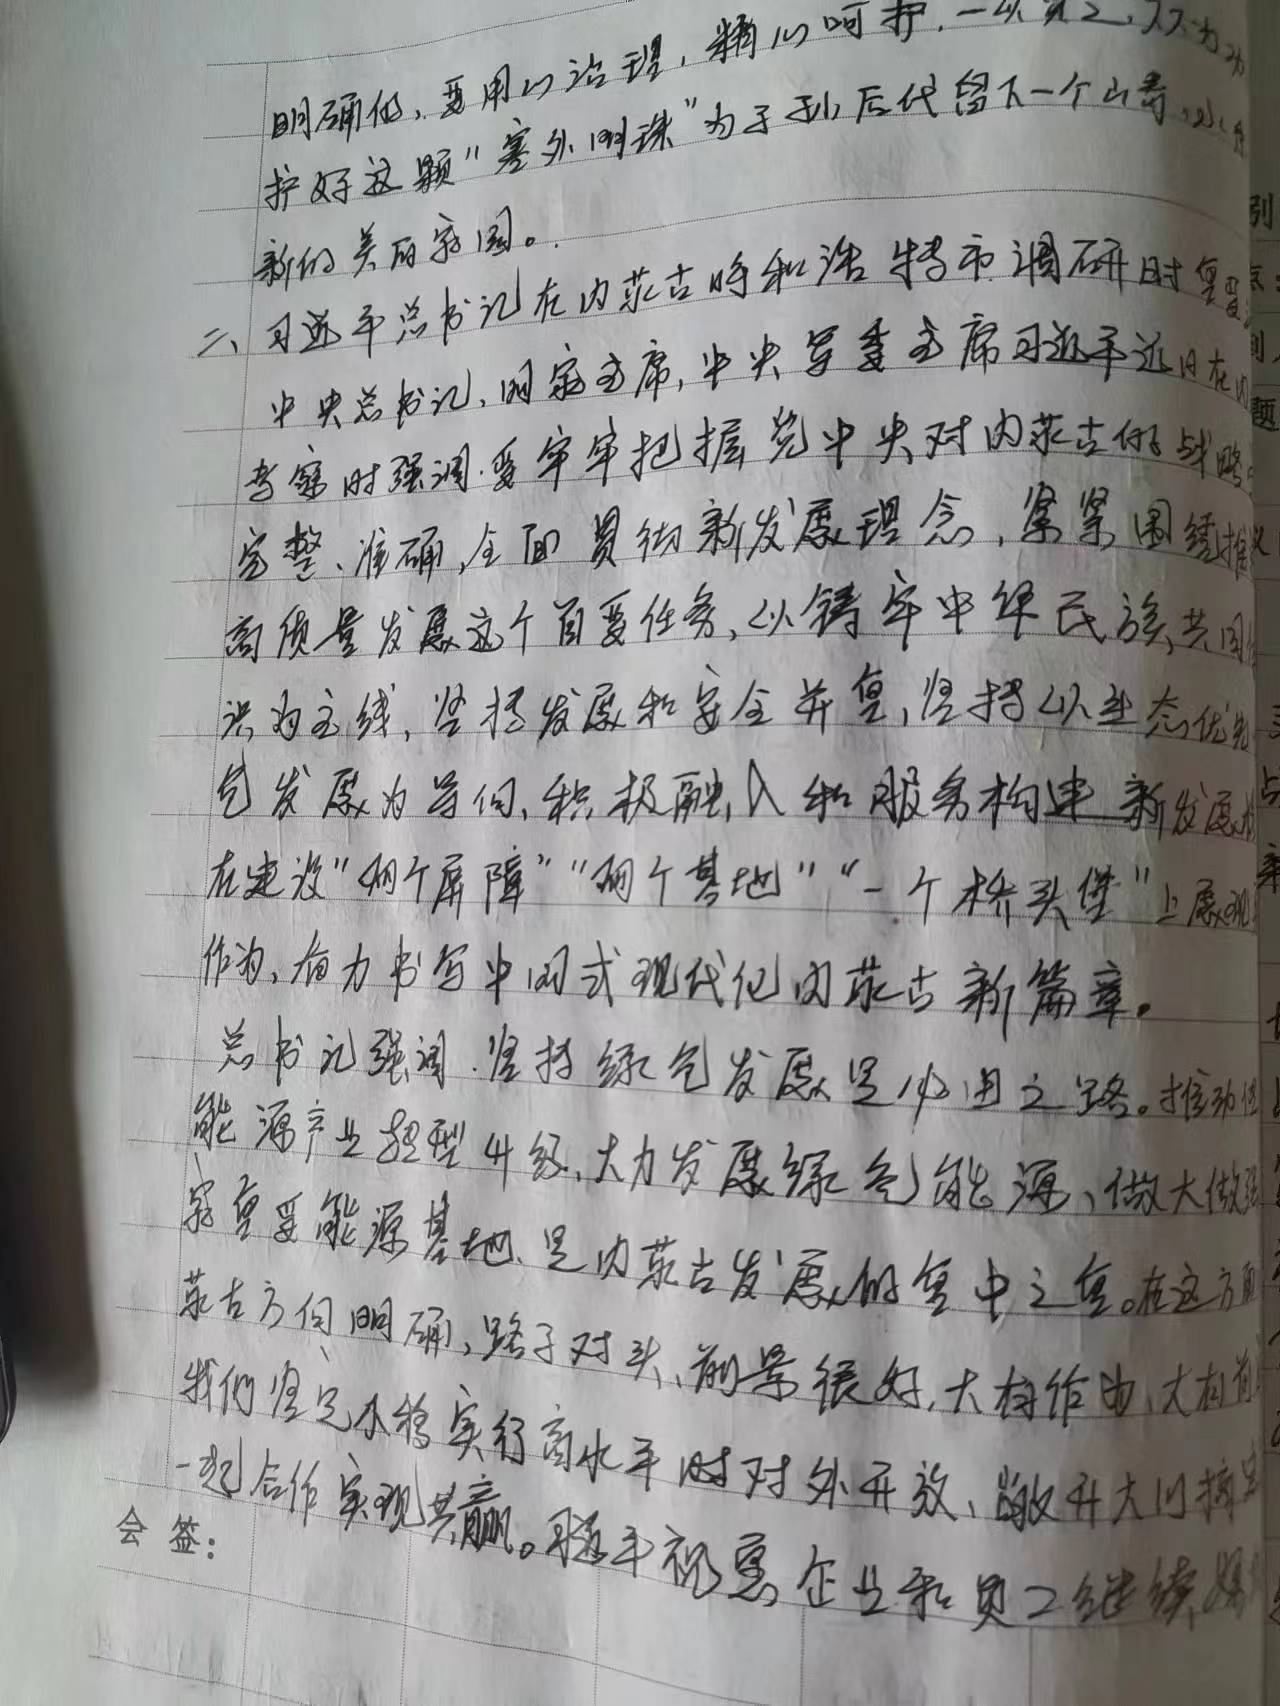 明确的，要用心治理，精心呵护，一以贯之，久久为功
护好这颗"塞外明珠"为子孙后代留下一个山青、水
新的美丽家园。
二、习近平总书记在内蒙古呼和浩特市调研时重要
中央总书记，国家主席，中央军委主席习近平近日在内
考察时强调.要牢牢把握党中央对内蒙古的战略
完整、准确，全面贯彻新发展理念，紧紧围绕推
高质量发展这个首要任务，以铸牢中华民族共同
识为主线，坚持发展和安全并重，坚持以生态优先
色发展为导向，积极融入和服务构建新发展
在建设"两个屏障""两个基地""一个桥头堡"上展现
作为，奋力书写中国式现代化内蒙古新篇章。
总书记强调.坚持绿色发展是必由之路。推动传
能源产业转型升级，大力发展绿色能源、做大做强
家重要能源基地、是内蒙古发展的重中之重。在这方面
蒙古方向明确，路子对头、前景很好，大有作为、大有前
我们坚定不移实行高水平对对外开放、敞开大门搞
一起合作实现共赢。习近平祝愿企业和员工继续
会签：
引
题